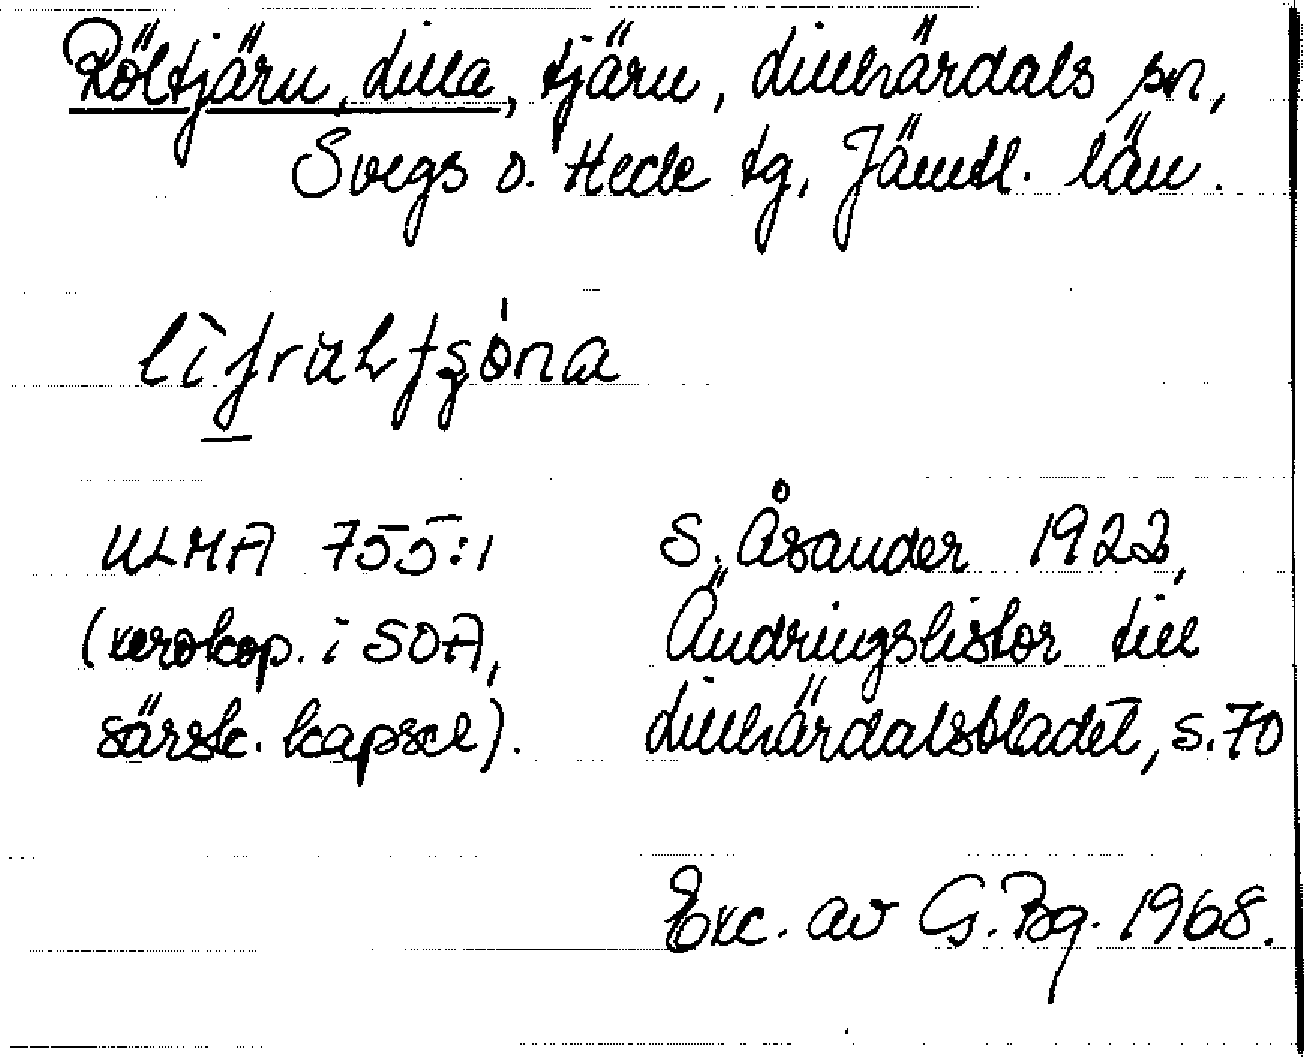 Röltjärn, Lilla, tjärn, Lillhärdals sn,
Svegs o. Hede tg, Jämtl. län.
ULMA 755:1
(xerokop. i SOA,
särsk. kapsel).
S. Åsander 1922,
Ändringslistor till
Lillhärdalsbladet, s. 70
Exc. av G. Bg. 1968.